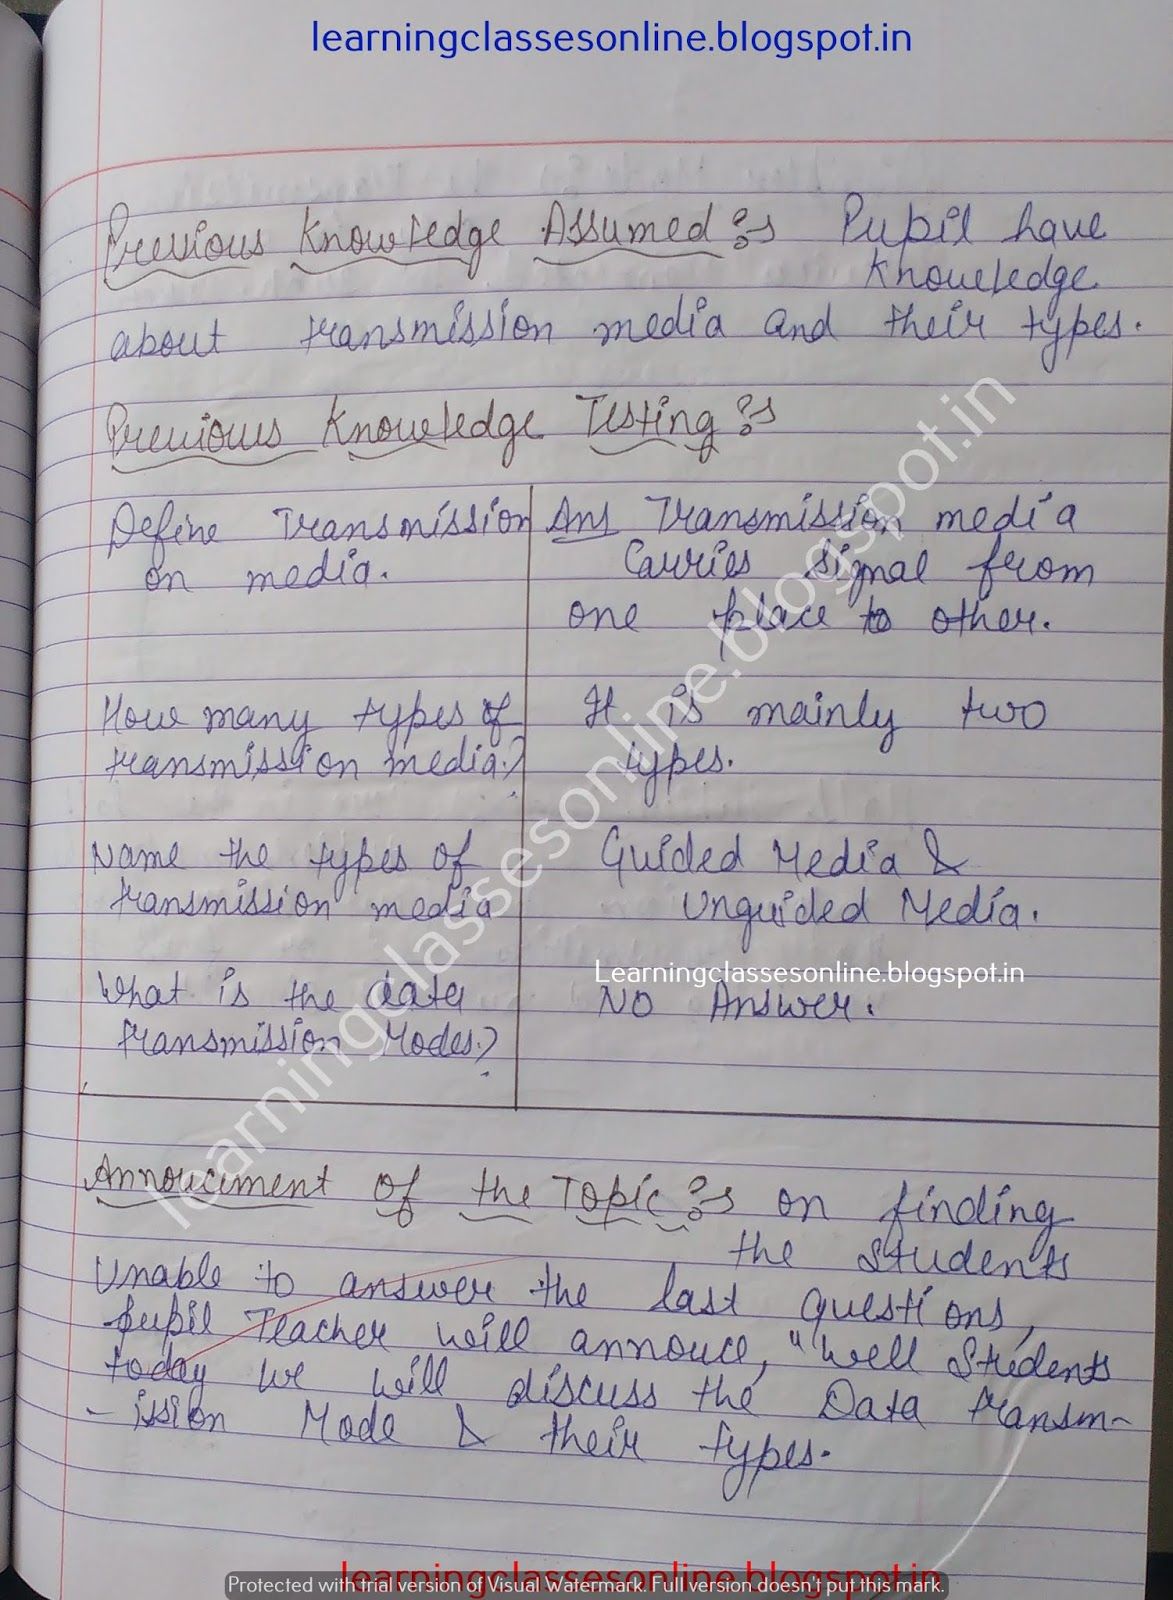 learningclassesonline.blogspot.in
Previous Knowledge Assumed :- Pupil have
Knowledge
about transmission media and their types.
Previous Knowledge Testing :-
Define Transmission
on media.
Ans Transmission media
Carries Signal from
one place to other.
How many types of
transmission media?
It is mainly two
types.
Name the types of
transmission media
Guided Media &
Unguided Media.
Learningclassesonline.blogspot.in
What is the data
transmission Modes?
No Answer.
learningclassesonline.blogspot.in
Annoucement of the Topic :- on finding
the students
Unable to answer the last questions,
pupil Teacher will annouce, "well Students
today we will discuss the Data transm-
-ission Mode & their types.
learningclassesonline.blogspot.in
Protected with trial version of Visual Watermark. Full version doesn't put this mark.